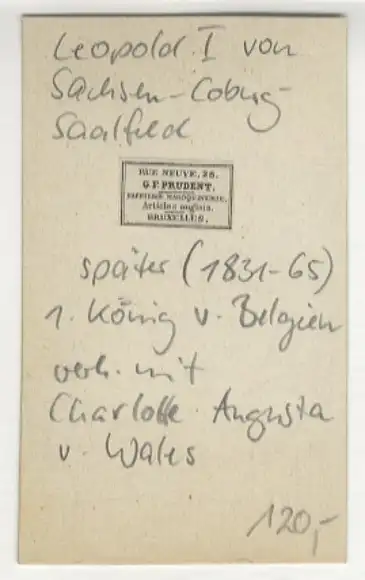 Leopold I von
Sachsen-Coburg-
Saalfeld
RUE NEUVE, 28.
G.F. PRUDENT.
PAPETERIE MAROQUINERIE.
Articles anglais.
BRUXELLES.
später (1831-65)
1. König v. Belgien
verh. mit
Charlotte Augusta
v. Wales
120,-